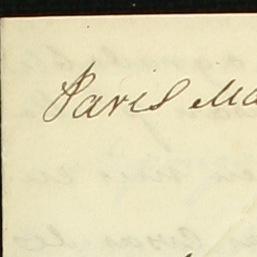 Paris Ma